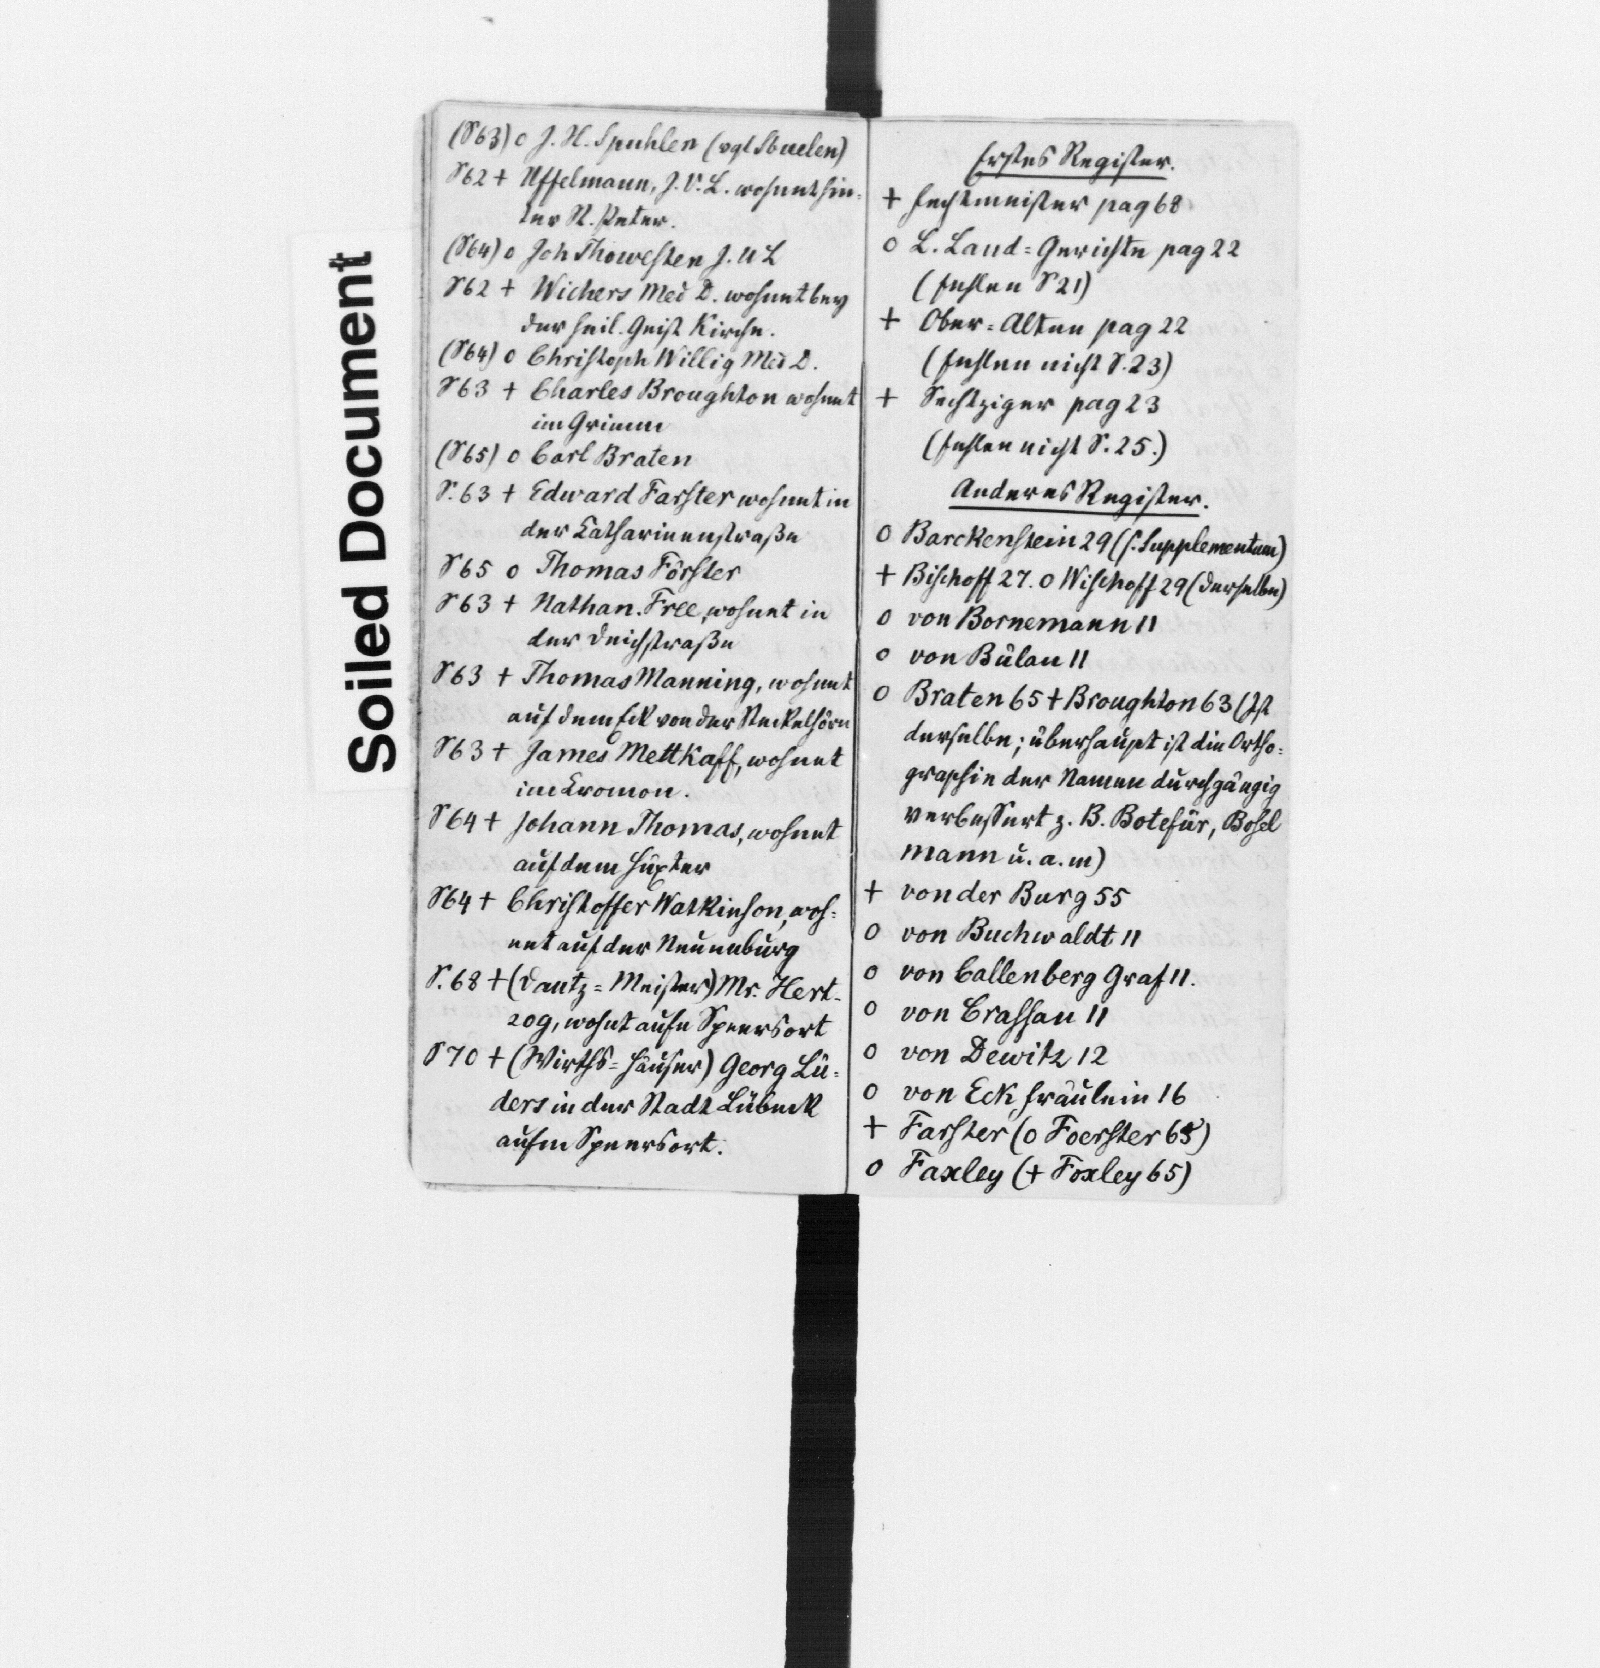 Soiled Document
(S63) o J. H. Spuhlen (vgl Stuelen)
S62 + Uffelmann, J. V. L. wohnet hin-
ter St. Peter.
(S64) o Joh Thowesten J. U L
S62 + Wichers Med D. wohnet bey
der heil. Geist Kirche.
(S64) o Christoph Willig Med D.
S63 + Charles Broughton wohnet
im Grimm
(S65) o Carl Braten
S. 63 + Edward Farster wohnet in
der Catharinenstraße
S65 o Thomas Förster
S63 + Nathan. Free, wohnet in
der Deichstraße
S63 + Thomas Manning, wohnet
auf dem Eck von der Steckelhörn
S63 + James Mettkaff, wohnet
im Cremon.
S64 + Johann Thomas, wohnet
auf dem Hüxter
S64 + Christoffer Watkinson, woh-
net auf der Neuenburg
S. 68 + (Dantz = Meister) Mr. Hert-
zog, wohnt aufn Speersort
S 70 + (Wirths = Häuser) Georg Lü-
ders in der Stadt Lübeck
aufm Speersort.
Erstes Register.
+ Fechtmeister pag 68
o L. Land = Gerichte pag 22
(fehlen S 21)
+ Ober = Alten pag 22
(fehlen nicht S. 23)
+ Sechziger pag 23
(fehlen nicht S. 25.)
Anderes Register.
o Barckenstein 29 (s. Supplementum)
+ Bischoff 27. o Wischoff 29 (derselbe)
o von Bornemann 11
o von Bülau 11
o Braten 65 + Broughton 63 (Ist
derselbe; überhaupt ist die Ortho-
graphie der Namen durchgängig
verbessert z. B. Botefür, Bosel
mann u. a. m)
+ von der Burg 55
o von Buchwaldt 11
o von Callenberg Graf 11.
o von Crassau 11
o von Dewitz 12
o von Eck fräulein 16
+ Farster (o Foerster 65)
o Faxley (+ Foxley 65)